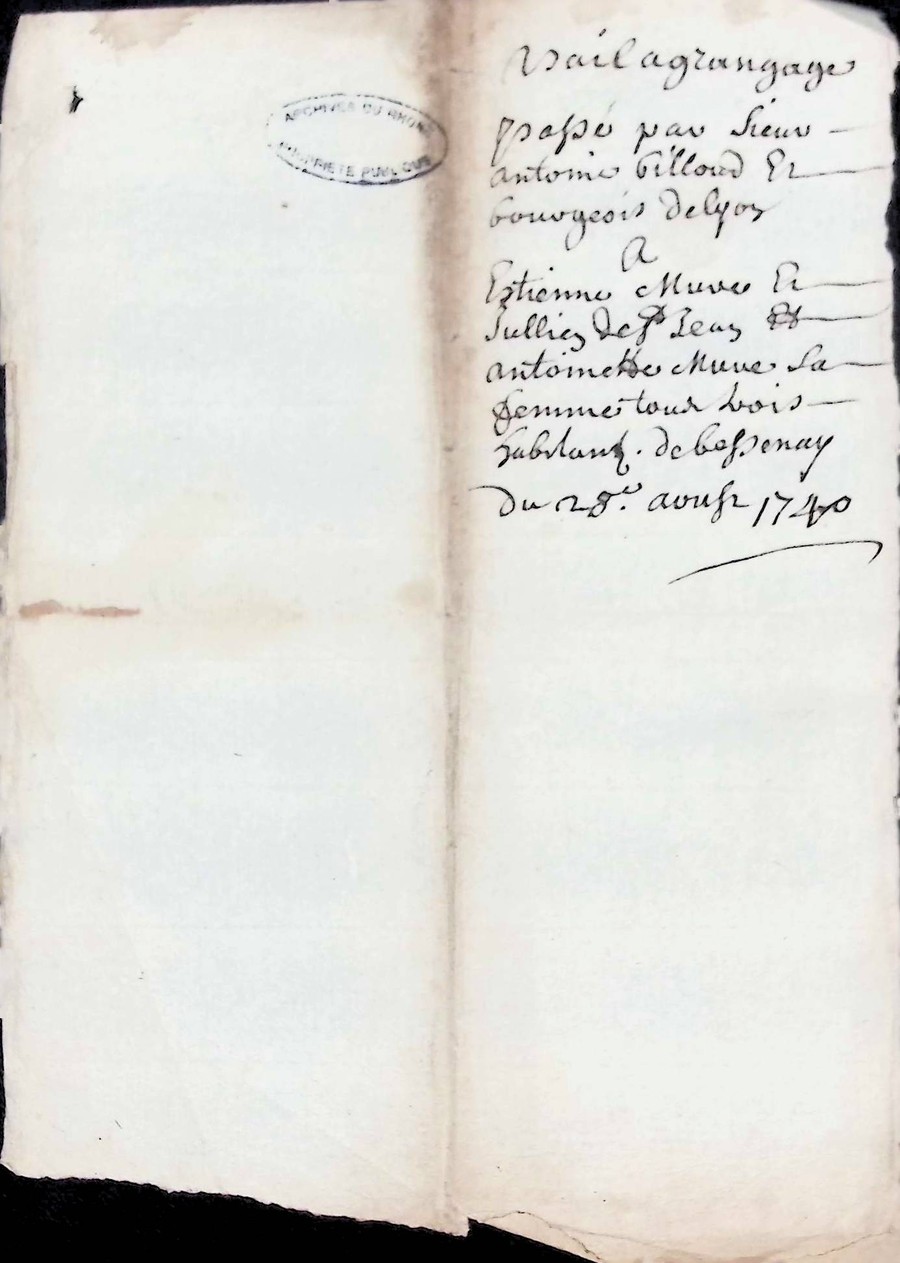 ARCHIVES DU RHONE
PROPRIETE PUBLIQUE
Bail a grangage
passé par Sieur
antoine billoud Et
bourgeois de lyon
A
Estienne Mure Et
Jullien de St Jean Et
antoinette Mure Sa
femme tous trois
habitants de bessenay
du 28e. aoust 1740